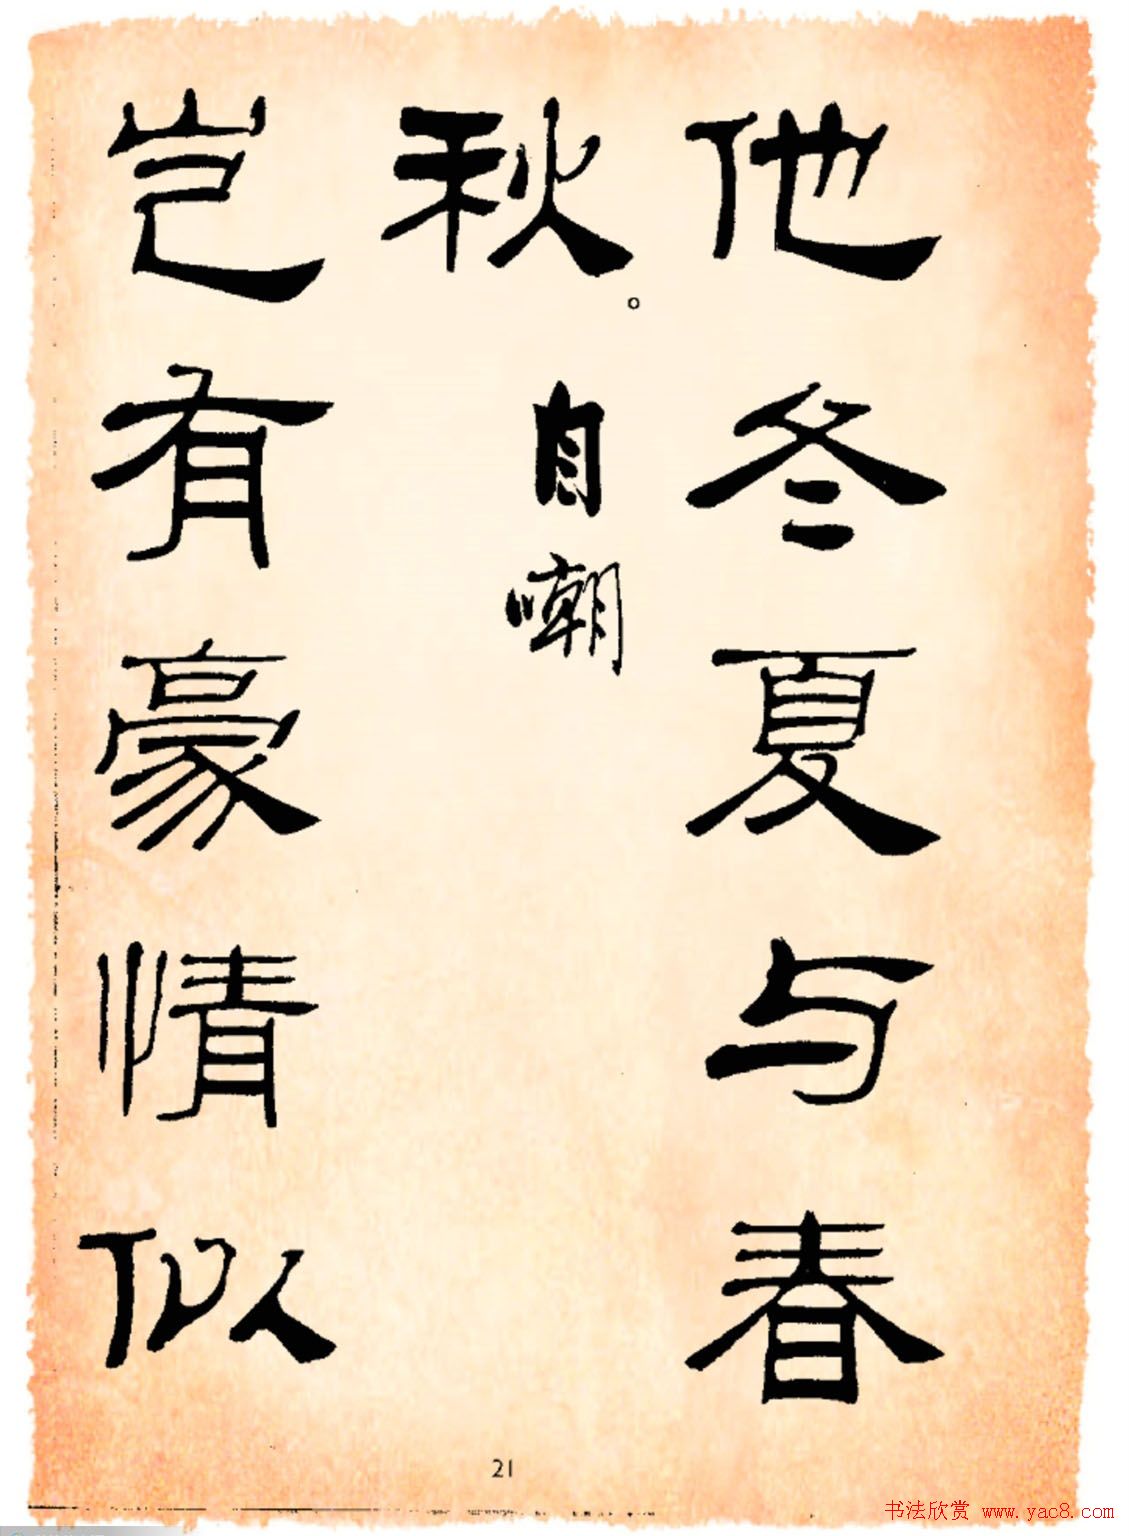 他冬夏与春
秋。自嘲
岂有豪情似
21
书法欣赏 www.yac8.com